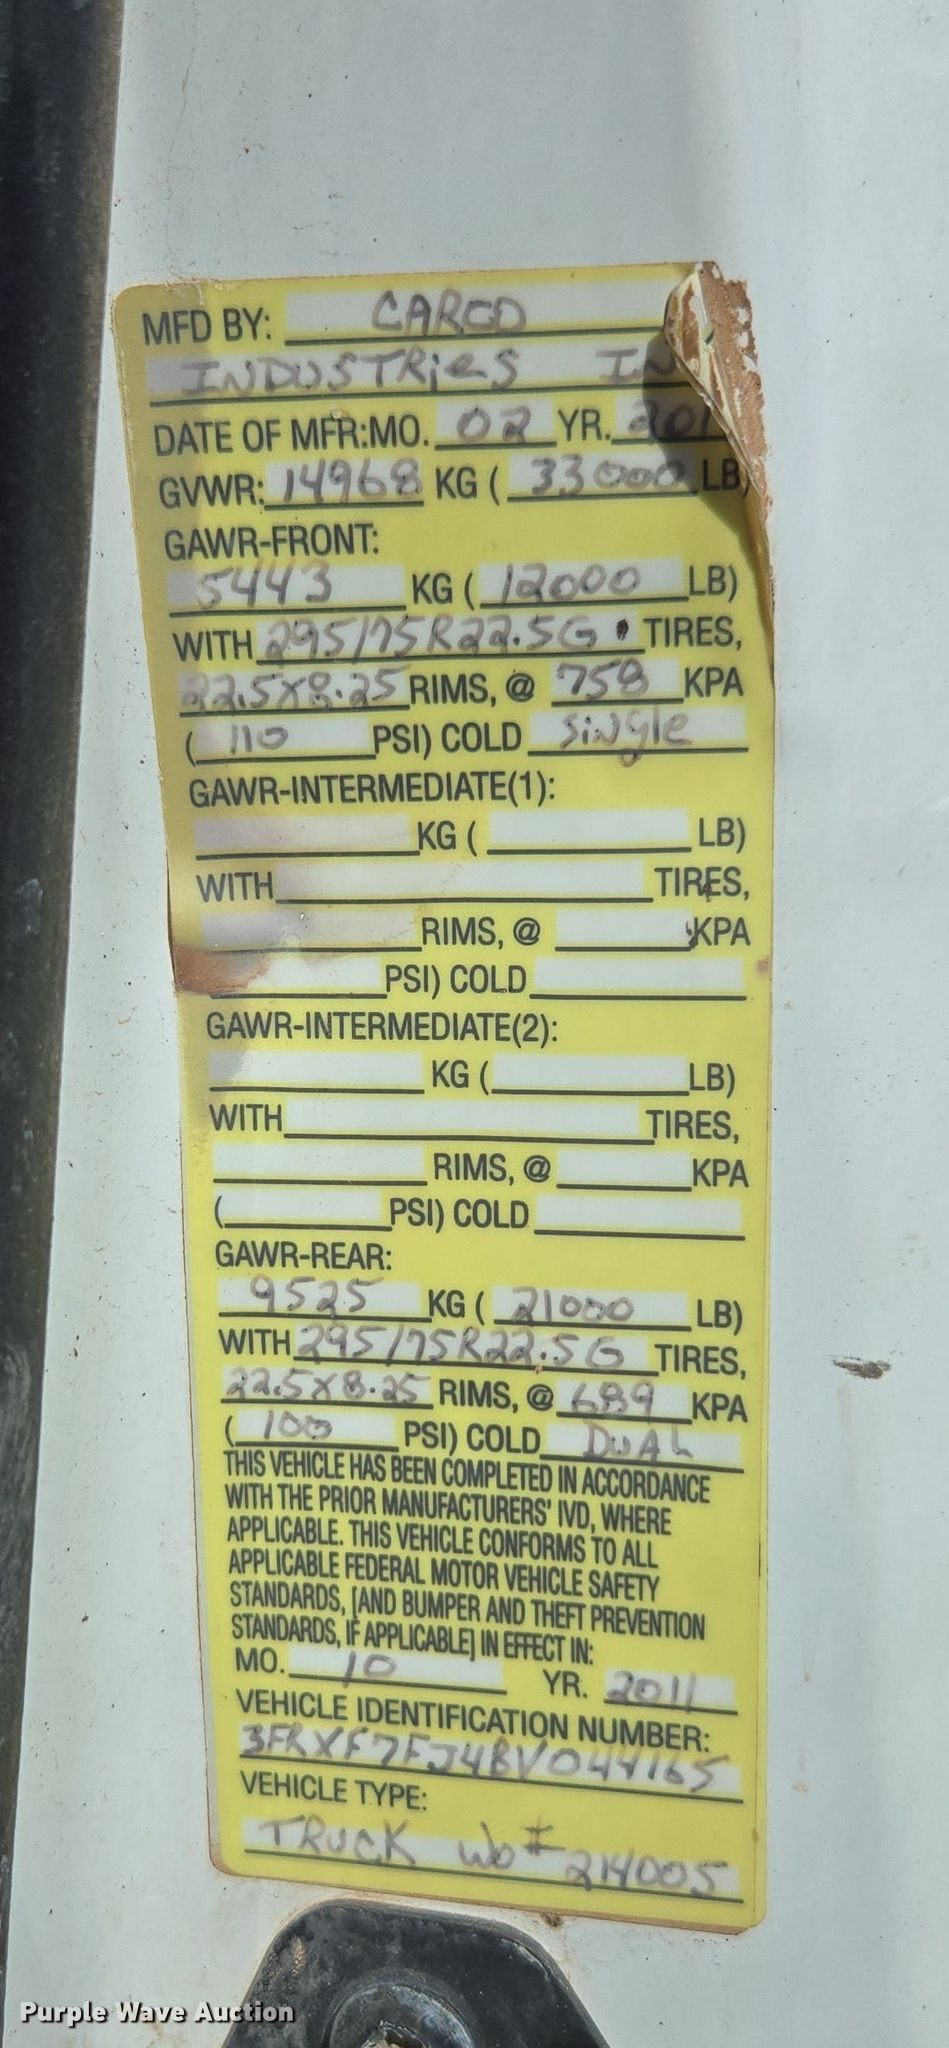 MFD BY: CARCO
INDUSTRIES IN
DATE OF MFR:MO. 02 YR. 201
GVWR: 14968 KG ( 33000 LB)
GAWR-FRONT:
5443 KG ( 12000 LB)
WITH 295/75R22.5G TIRES,
22.5X8.25 RIMS, @ 758 KPA
( 110 PSI) COLD SiNgle
GAWR-INTERMEDIATE(1):
KG ( LB)
WITH TIRES,
RIMS, @ KPA
PSI) COLD
GAWR-INTERMEDIATE(2):
KG ( LB)
WITH TIRES,
RIMS, @ KPA
( PSI) COLD
GAWR-REAR:
9525 KG ( 21000 LB)
WITH 295/75R22.5G TIRES,
22.5X8.25 RIMS, @ 689 KPA
( 100 PSI) COLD DUAL
THIS VEHICLE HAS BEEN COMPLETED IN ACCORDANCE
WITH THE PRIOR MANUFACTURERS' IVD, WHERE
APPLICABLE. THIS VEHICLE CONFORMS TO ALL
APPLICABLE FEDERAL MOTOR VEHICLE SAFETY
STANDARDS, [AND BUMPER AND THEFT PREVENTION
STANDARDS, IF APPLICABLE] IN EFFECT IN:
MO. 10 YR. 2011
VEHICLE IDENTIFICATION NUMBER:
3FRXF7FJ4BV044165
VEHICLE TYPE:
TRUCK WO# 214005
Purple Wave Auction